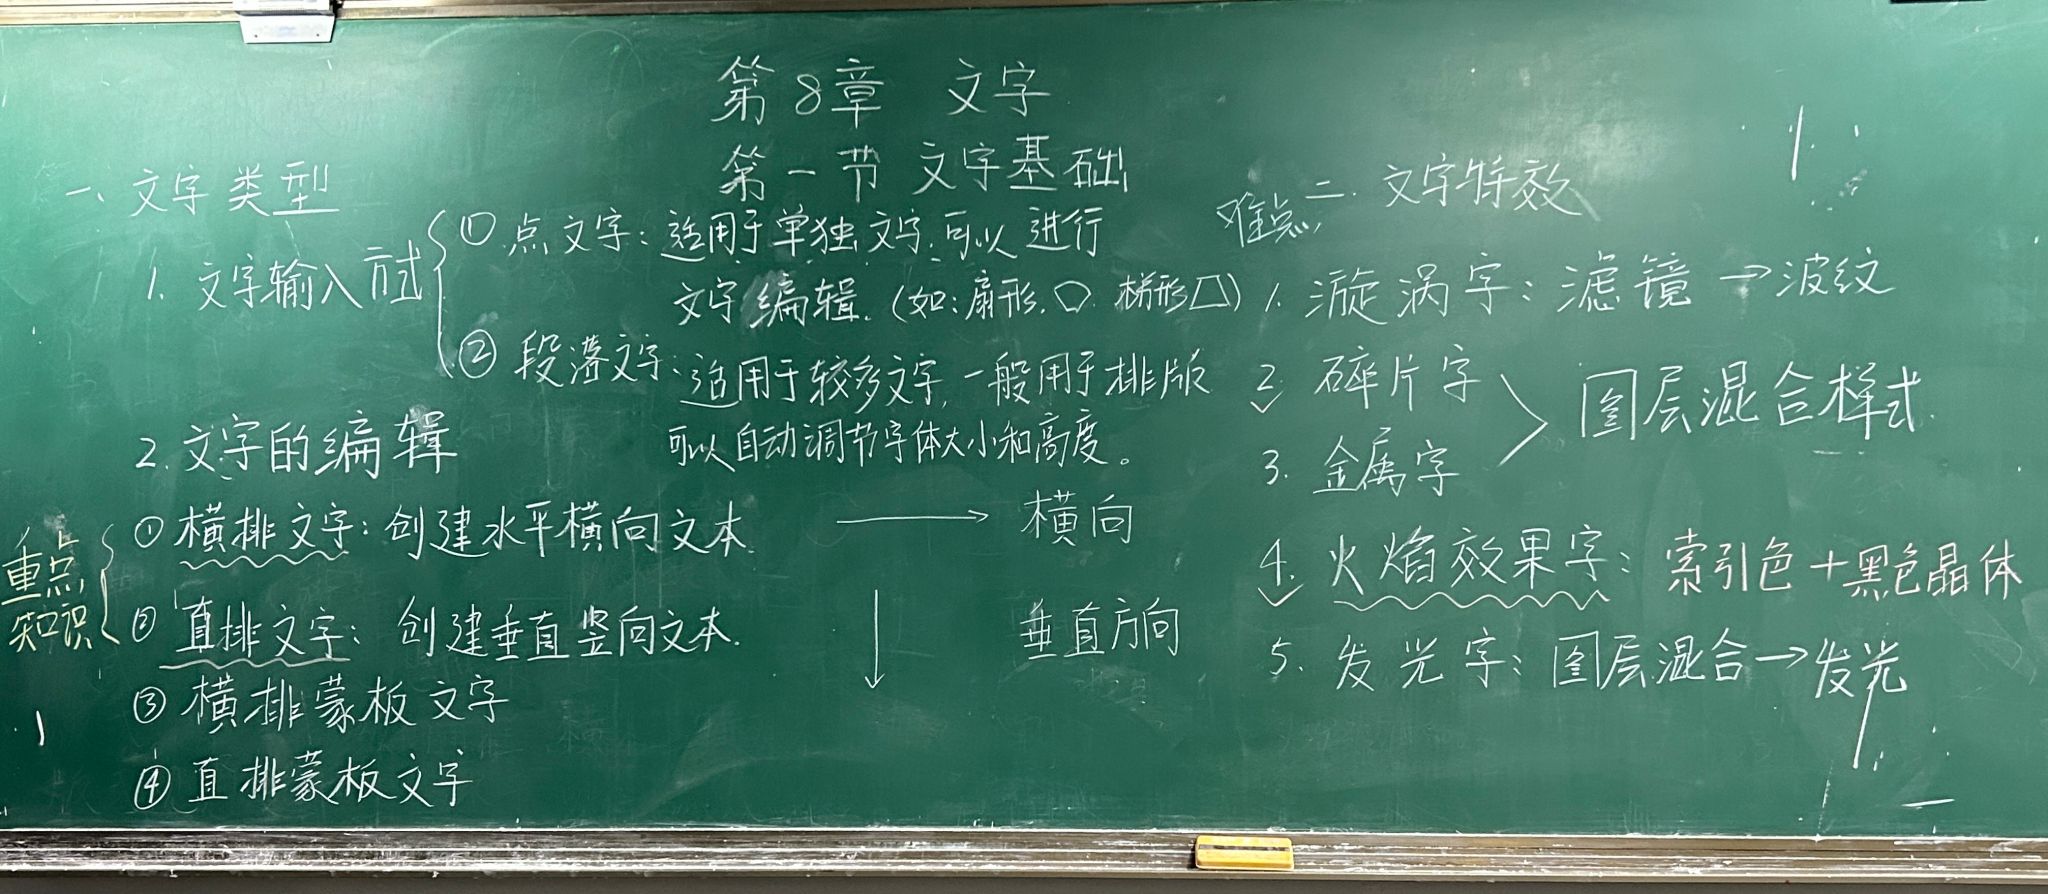 第8章 文字
第一节 文字基础
一、文字类型
1. 文字输入方式
① 点文字：适用于单独文字.可以进行
文字编辑.（如：扇形. 梯形）
② 段落文字：适用于较多文字,一般用于排版
可以自动调节字体大小和高度。
2.文字的编辑
重点
知识
① 横排文字：创建水平横向文本. → 横向
② 直排文字：创建垂直竖向文本. ↓ 垂直方向
③ 横排蒙板文字
④ 直排蒙板文字
难点 二.文字特效
1. 漩涡字：滤镜→波纹
2. 碎片字
3. 金属字
图层混合样式.
4. 火焰效果字：索引色+黑色晶体
5. 发光字：图层混合→发光